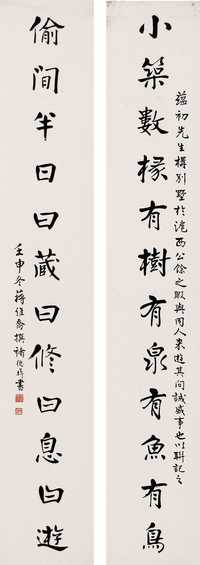 蘊初先生構別墅於滬西公餘之暇與同人來遊其間誠盛事也以聯記之
小築數椽有樹有泉有魚有鳥
偷間半日曰藏曰修曰息曰遊
壬申冬蔣維喬撰褚德彝書